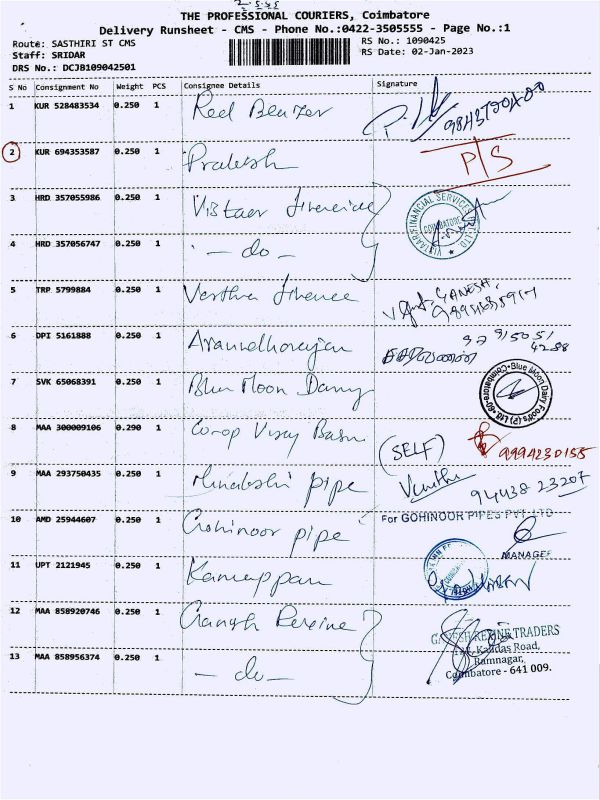 THE PROFESSIONAL COURIERS, Coimbatore
Delivery Runsheet - CMS - Phone No.:0422-3505555 - Page No.:1
Route: SASTHIRI ST CMS
RS No.: 1090425
Staff: SRIDAR
RS Date: 02-Jan-2023
DRS No.: DCJB109042501
S No Consignment No Weight PCS Consignee Details Signature
1 KUR 528483534 0.250 1
2 KUR 694353587 0.250 1 Prakash P/S
3 HRD 357055986 0.250 1 Vistaar
VISTAAR FINANCIAL SERVICES PVT. LTD. COIMBATORE
4 HRD 357056747 0.250 1 - do -
5 TRP 5799884 0.250 1 GANESH
6 DPI 5161888 0.250 1
7 SVK 65068391 0.250 1 Blue Moon
Blue Moon Dairy Food's (P) Ltd. Coimbatore
8 MAA 300009106 0.290 1 Co-op (SELF) 9994230155
9 MAA 293750435 0.250 1 pipe 94438 23207
10 AMD 25944607 0.250 1 Gohinoor pipe
For GOHINOOR PIPES PVT LTD
MANAGER
11 UPT 2121945 0.250 1 Kannappan
12 MAA 858920746 0.250 1 Ganesh
GANESH REXINE TRADERS
Kalidas Road,
Ramnagar,
Coimbatore - 641 009.
13 MAA 858956374 0.250 1 - do -